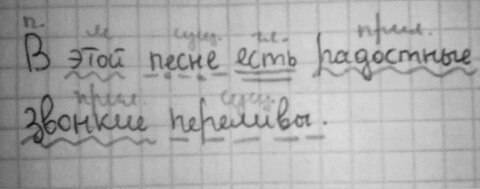 п. м. сущ. гл. прил.
В этой песне есть радостные
прил. сущ.
звонкие переливы.